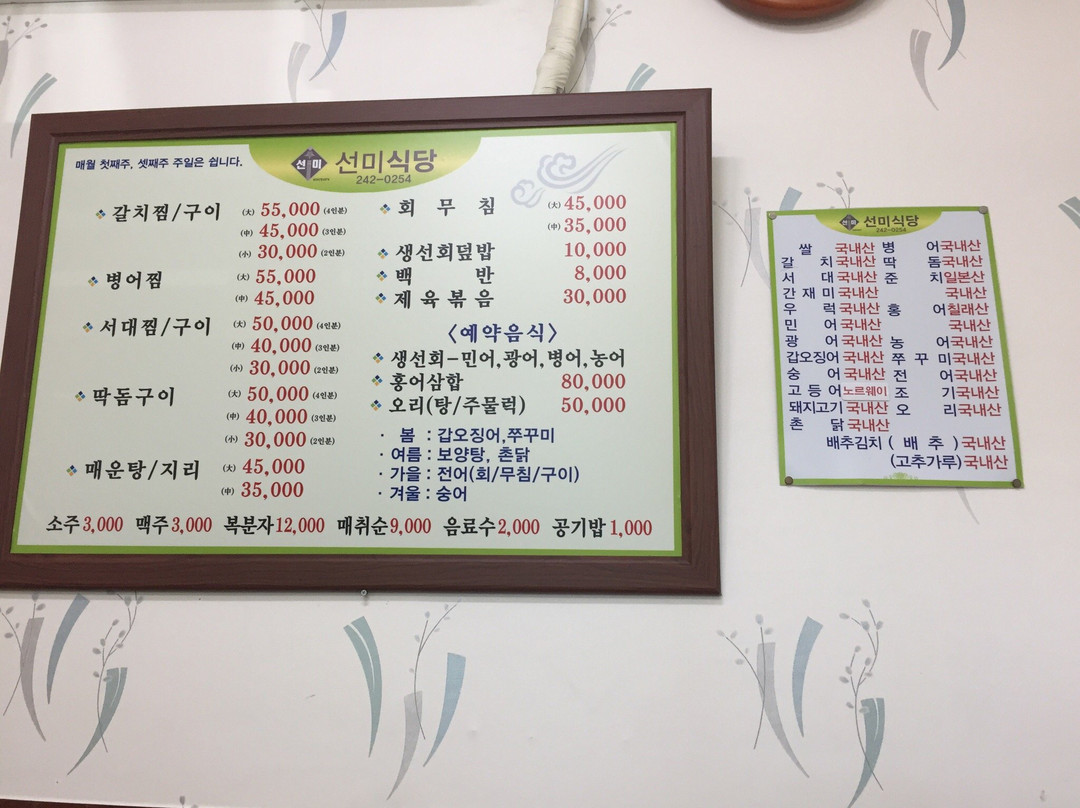 매월 첫째주, 셋째주 주일은 쉽니다.
선미 선미식당
242-0254
갈치찜/구이 (大) 55,000 (4인분)
(中) 45,000 (3인분)
(小) 30,000 (2인분)
병어찜 (大) 55,000
(中) 45,000
서대찜/구이 (大) 50,000 (4인분)
(中) 40,000 (3인분)
(小) 30,000 (2인분)
딱돔구이 (大) 50,000 (4인분)
(中) 40,000 (3인분)
(小) 30,000 (2인분)
매운탕/지리 (大) 45,000
(中) 35,000
회 무 침 (大) 45,000
(中) 35,000
생선회덮밥 10,000
백 반 8,000
제육볶음 30,000
<예약음식>
생선회-민어,광어,병어,농어
홍어삼합 80,000
오리(탕/주물럭) 50,000
· 봄 : 갑오징어,쭈꾸미
· 여름 : 보양탕, 촌닭
· 가을 : 전어(회/무침/구이)
· 겨울 : 숭어
소주 3,000 맥주 3,000 복분자 12,000 매취순 9,000 음료수 2,000 공기밥 1,000
선미식당
242-0254
쌀 국내산 병 어 국내산
갈 치 국내산 딱 돔 국내산
서 대 국내산 준 치 일본산
간 재 미 국내산 국내산
우 럭 국내산 홍 어 칠래산
민 어 국내산 국내산
광 어 국내산 농 어 국내산
갑오징어 국내산 쭈 꾸 미 국내산
숭 어 국내산 전 어 국내산
고 등 어 노르웨이 조 기 국내산
돼지고기 국내산 오 리 국내산
촌 닭 국내산
배추김치 ( 배 추 ) 국내산
(고추가루) 국내산